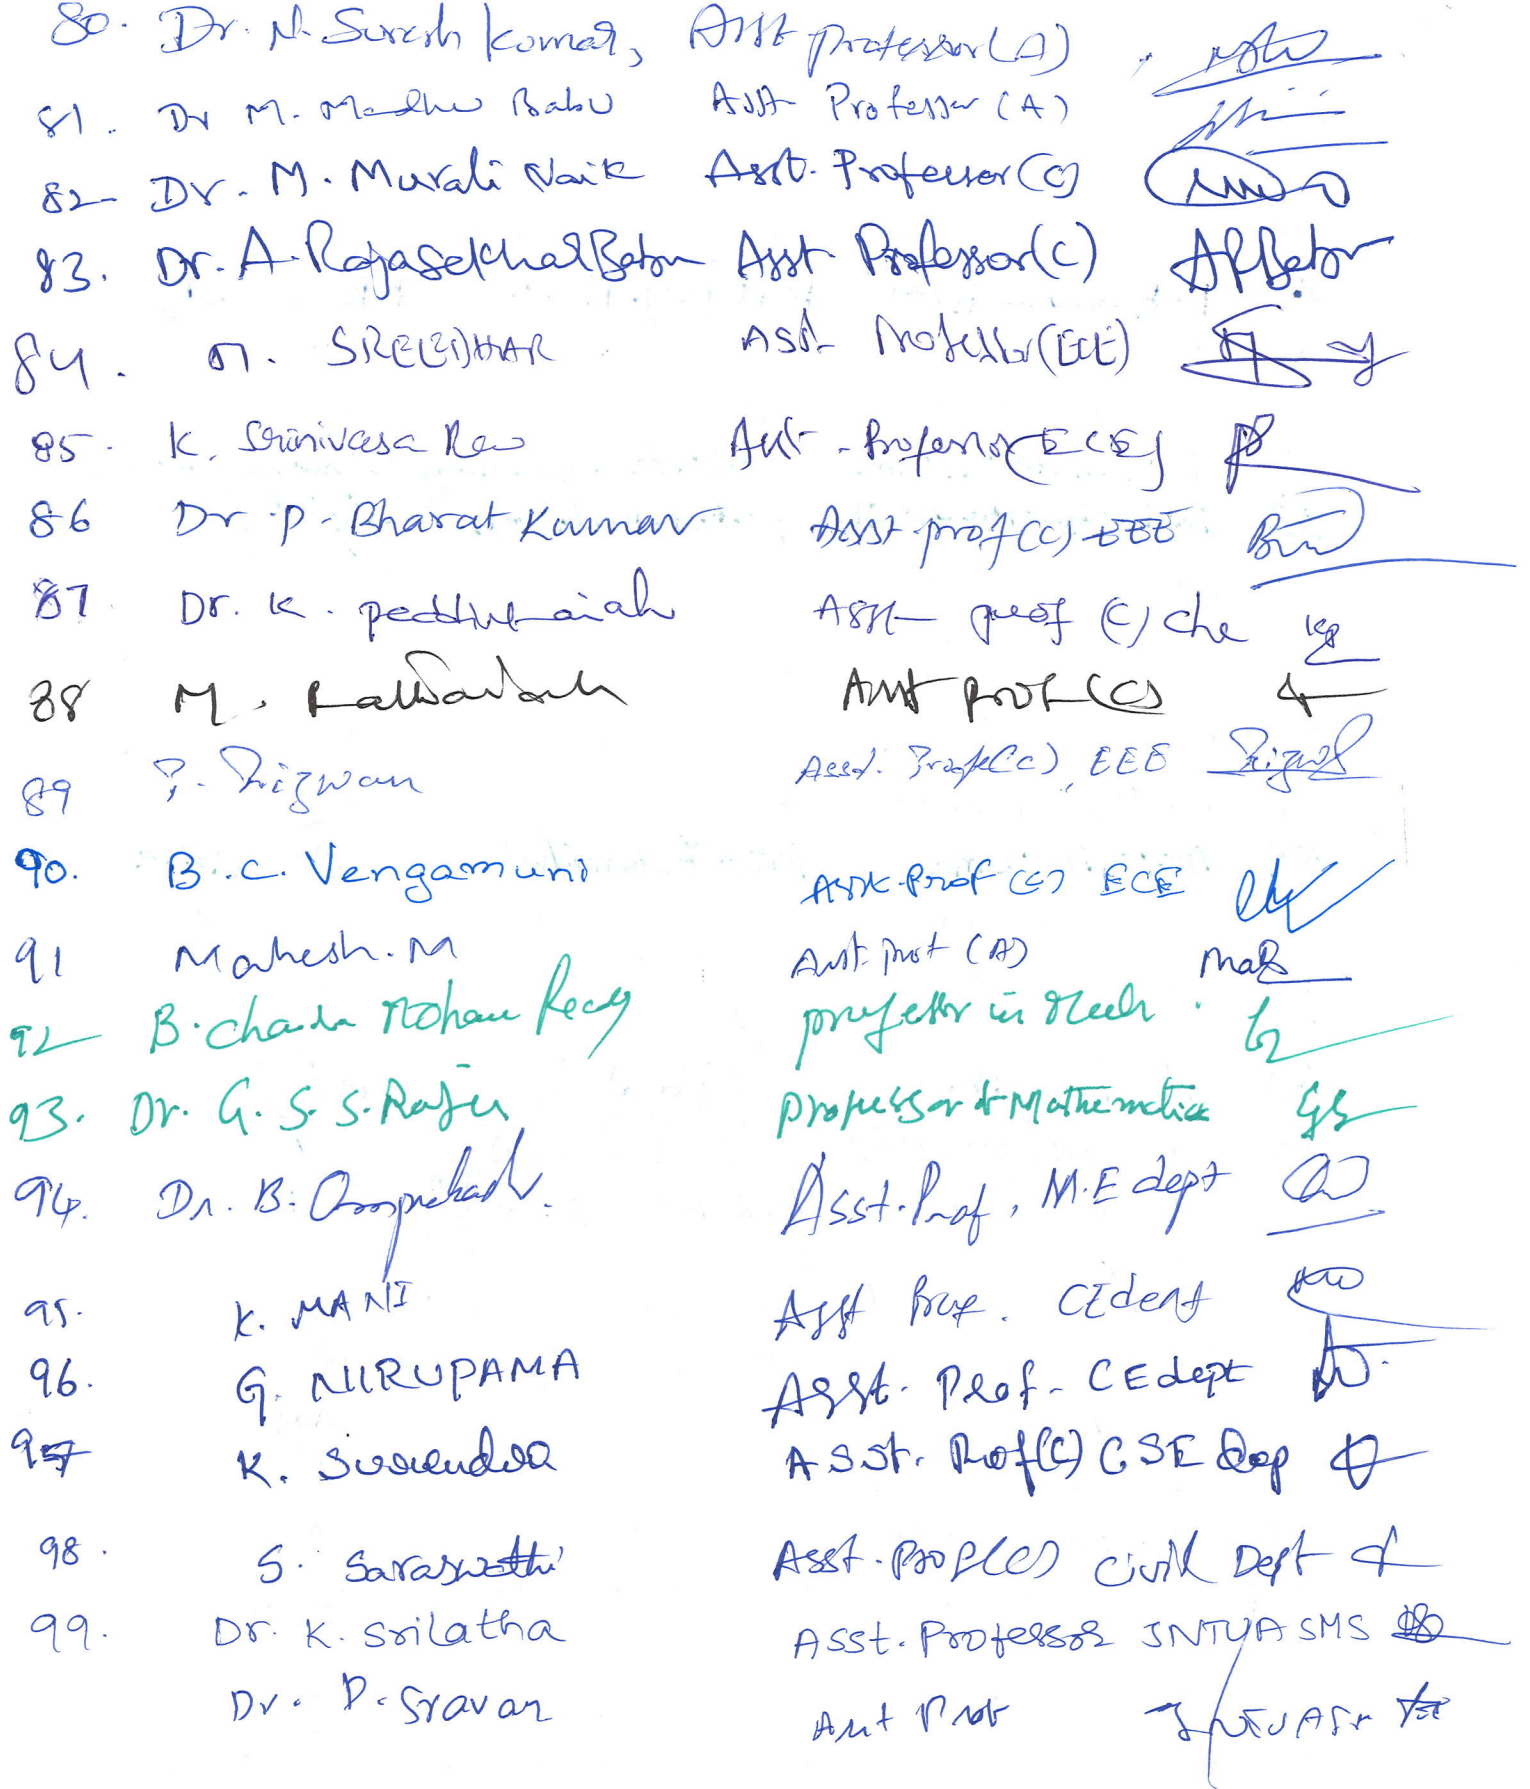 80. Dr. N. Suresh Kumar, Asst professor (A)
81. Dr M. Madhu Babu Asst Professor (A)
82- Dr. M. Murali Naik Asst. Professor (C)
83. Dr. A. Rajasekhar Babu Asst. Professor (C) ARBabu
84. M. SREEDHAR Asst Professor (ECE)
85. K. Srinivasa Rao Asst. Professor (ECE)
86 Dr. P. Bharat Kumar Asst. prof (C) EEE
87 Dr. K. peddintaiah Asst prof (C) Che
88 M. Asst prof (C)
89 P. Rizwan Asst. Profe (C), EEE Rizwan
90. B.C. Vengamuni Asst. Prof (C) ECE
91 Mahesh. M Asst. prof (A) Mah
92 B. Chandra Mohan Reddy professor in Mech.
93. Dr. G. S. S. Raju professor of Mathematics
94. Dr. B. Omprakash. Asst. Prof, M.E dept
95. K. MANI Asst Prof. CE dept
96. G. NIRUPAMA Asst. Prof. CE dept
97 K. Surendra Asst. Prof (C) CSE dep
98. S. Saraswathi Asst. Prof (C) Civil Dept
99. Dr. K. Srilatha Asst. Professor JNTUA SMS
Dr. D. Sravan Asst Prof